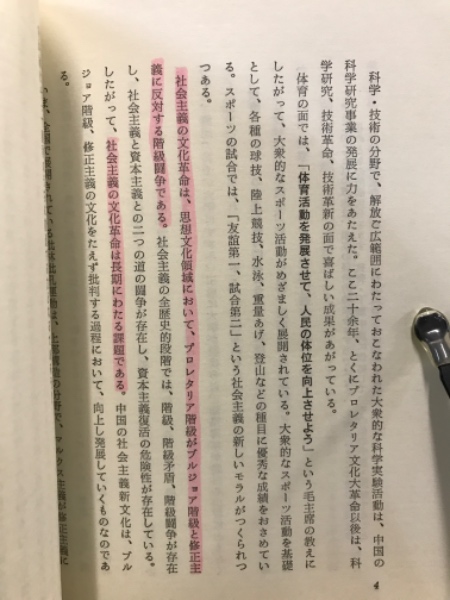 科学・技術の分野で、解放ご広範囲にわたっておこなわれた大衆的な科学実験活動は、中国の
科学研究事業の発展に力をあたえた。ここ二十余年、とくにプロレタリア文化大革命以後は、科
学研究、技術革命、技術革新の面で喜ばしい成果があがっている。
体育の面では、「体育活動を発展させて、人民の体位を向上させよう」という毛主席の教えに
したがって、大衆的なスポーツ活動がめざましく展開されている。大衆的なスポーツ活動を基礎
として、各種の球技、陸上競技、水泳、重量あげ、登山などの種目に優秀な成績をおさめてい
る。スポーツの試合では、「友誼第一、試合第二」という社会主義の新しいモラルがつくられつ
つある。
社会主義の文化革命は、思想文化領域において、プロレタリア階級がブルジョア階級と修正主
義に反対する階級闘争である。社会主義の全歴史的段階では、階級、階級矛盾、階級闘争が存在
し、社会主義と資本主義との二つの道の闘争が存在し、資本主義復活の危険性が存在している。
したがって、社会主義の文化革命は長期にわたる課題である。中国の社会主義新文化は、ブル
ジョア階級、修正主義の文化をたえず批判する過程において、向上し発展していくものなのであ
る。
全国で展開されている批林批孔運動は、上部構造の分野で、マルクス主義が修正主義に
4